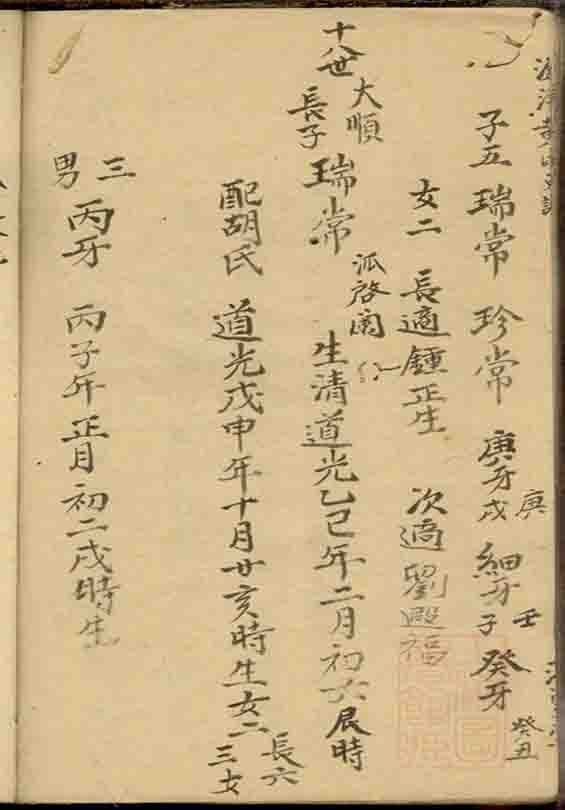 子五 瑞常 珍常 庚牙 庚戌 細牙 壬子 癸牙 癸丑
女二 長適鍾正生 次適劉殿福
十八世 大順長子 瑞常 派啓蘭 生清道光乙巳年二月初六辰時
配胡氏 道光戊申年十月廿亥時生女二 長六 三女
三男 丙牙 丙子年正月初二戌時生